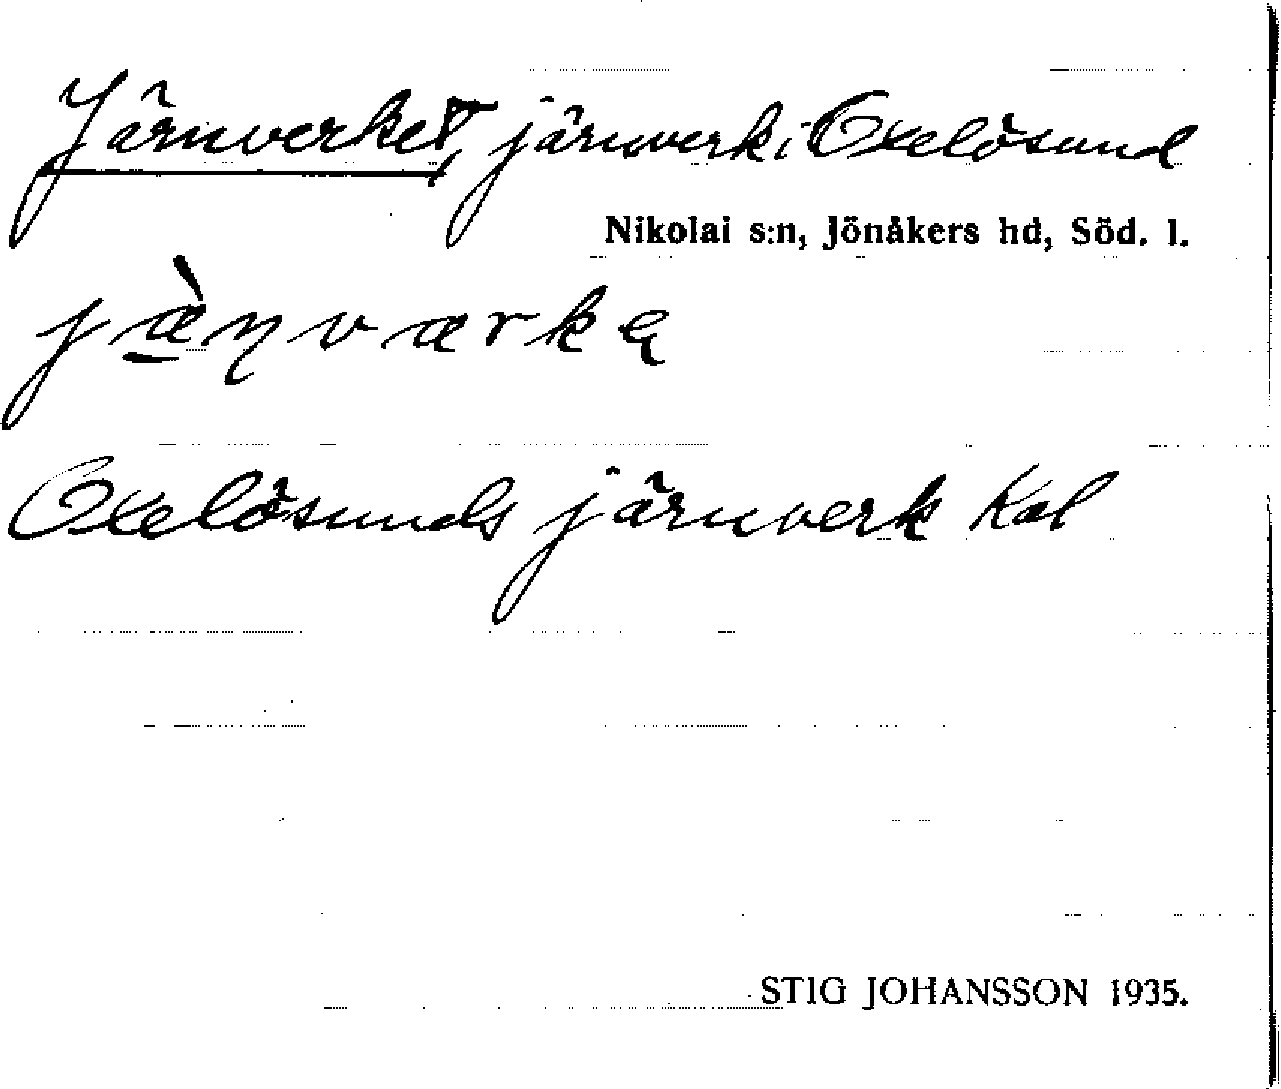 Järnverket, järnverk i Oxelösund
Nikolai s:n, Jönåkers hd, Söd. l.
jæ̠̀ɳværkę
Oxelösunds järnverk Kal
STIG JOHANSSON 1935.